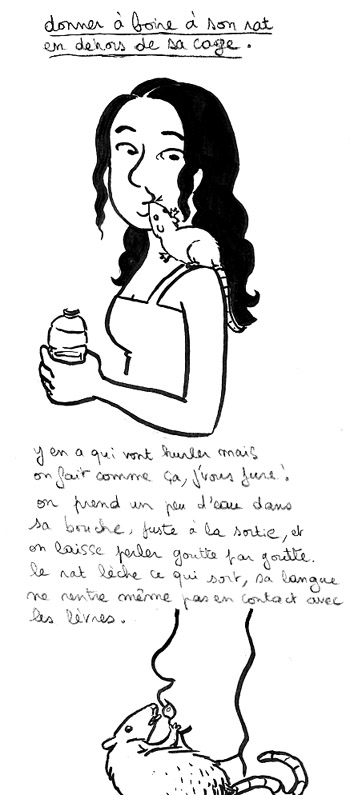 donner à boire à son rat
en dehors de sa cage.
y en a qui vont hurler mais
on fait comme ça, j'vous jure !
on prend un peu d'eau dans
sa bouche, juste à la sortie, et
on laisse perler goutte par goutte.
le rat lèche ce qui sort, sa langue
ne rentre même pas en contact avec
les lèvres.